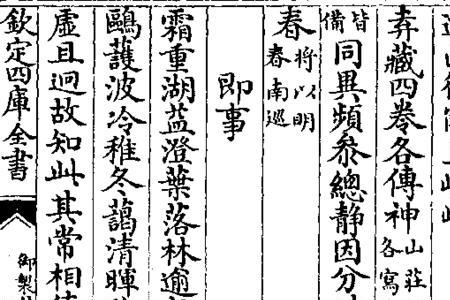 弆藏四卷各傳神山莊各寫
皆備同異頻參總靜因分
春將以明春南巡
即事
霜重湖益澄葉落林逾
鷗護波冷稚冬藹清暉
虛且迥故知此其常相
欽定四庫全書
御製